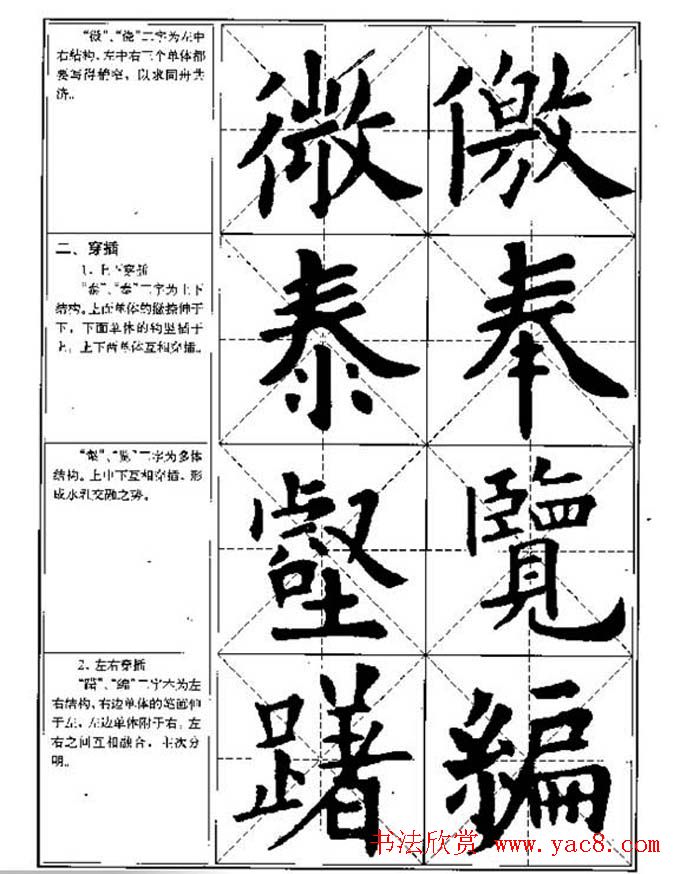 “微”、“侥”二字为左中
右结构，左中右三个单体都
要写得稍窄，以求同舟共
济。
微 徼
二、穿插
1．上下穿插
“泰”、“奉”二字为上下
结构。上面单体的撇捺伸于
下，下面单体的钩竖插于
上，上下两单体互相穿插。
泰 奉
“壑”、“览”二字为多体
结构。上中下互相穿插，形
成水乳交融之势。
壑 覽
2．左右穿插
二字本为左
右结构，右边单体的笔画伸
于左，左边单体附于右，左
右之间互相融合，主次分
明。
躇 編
书法欣赏 www.yac8.com